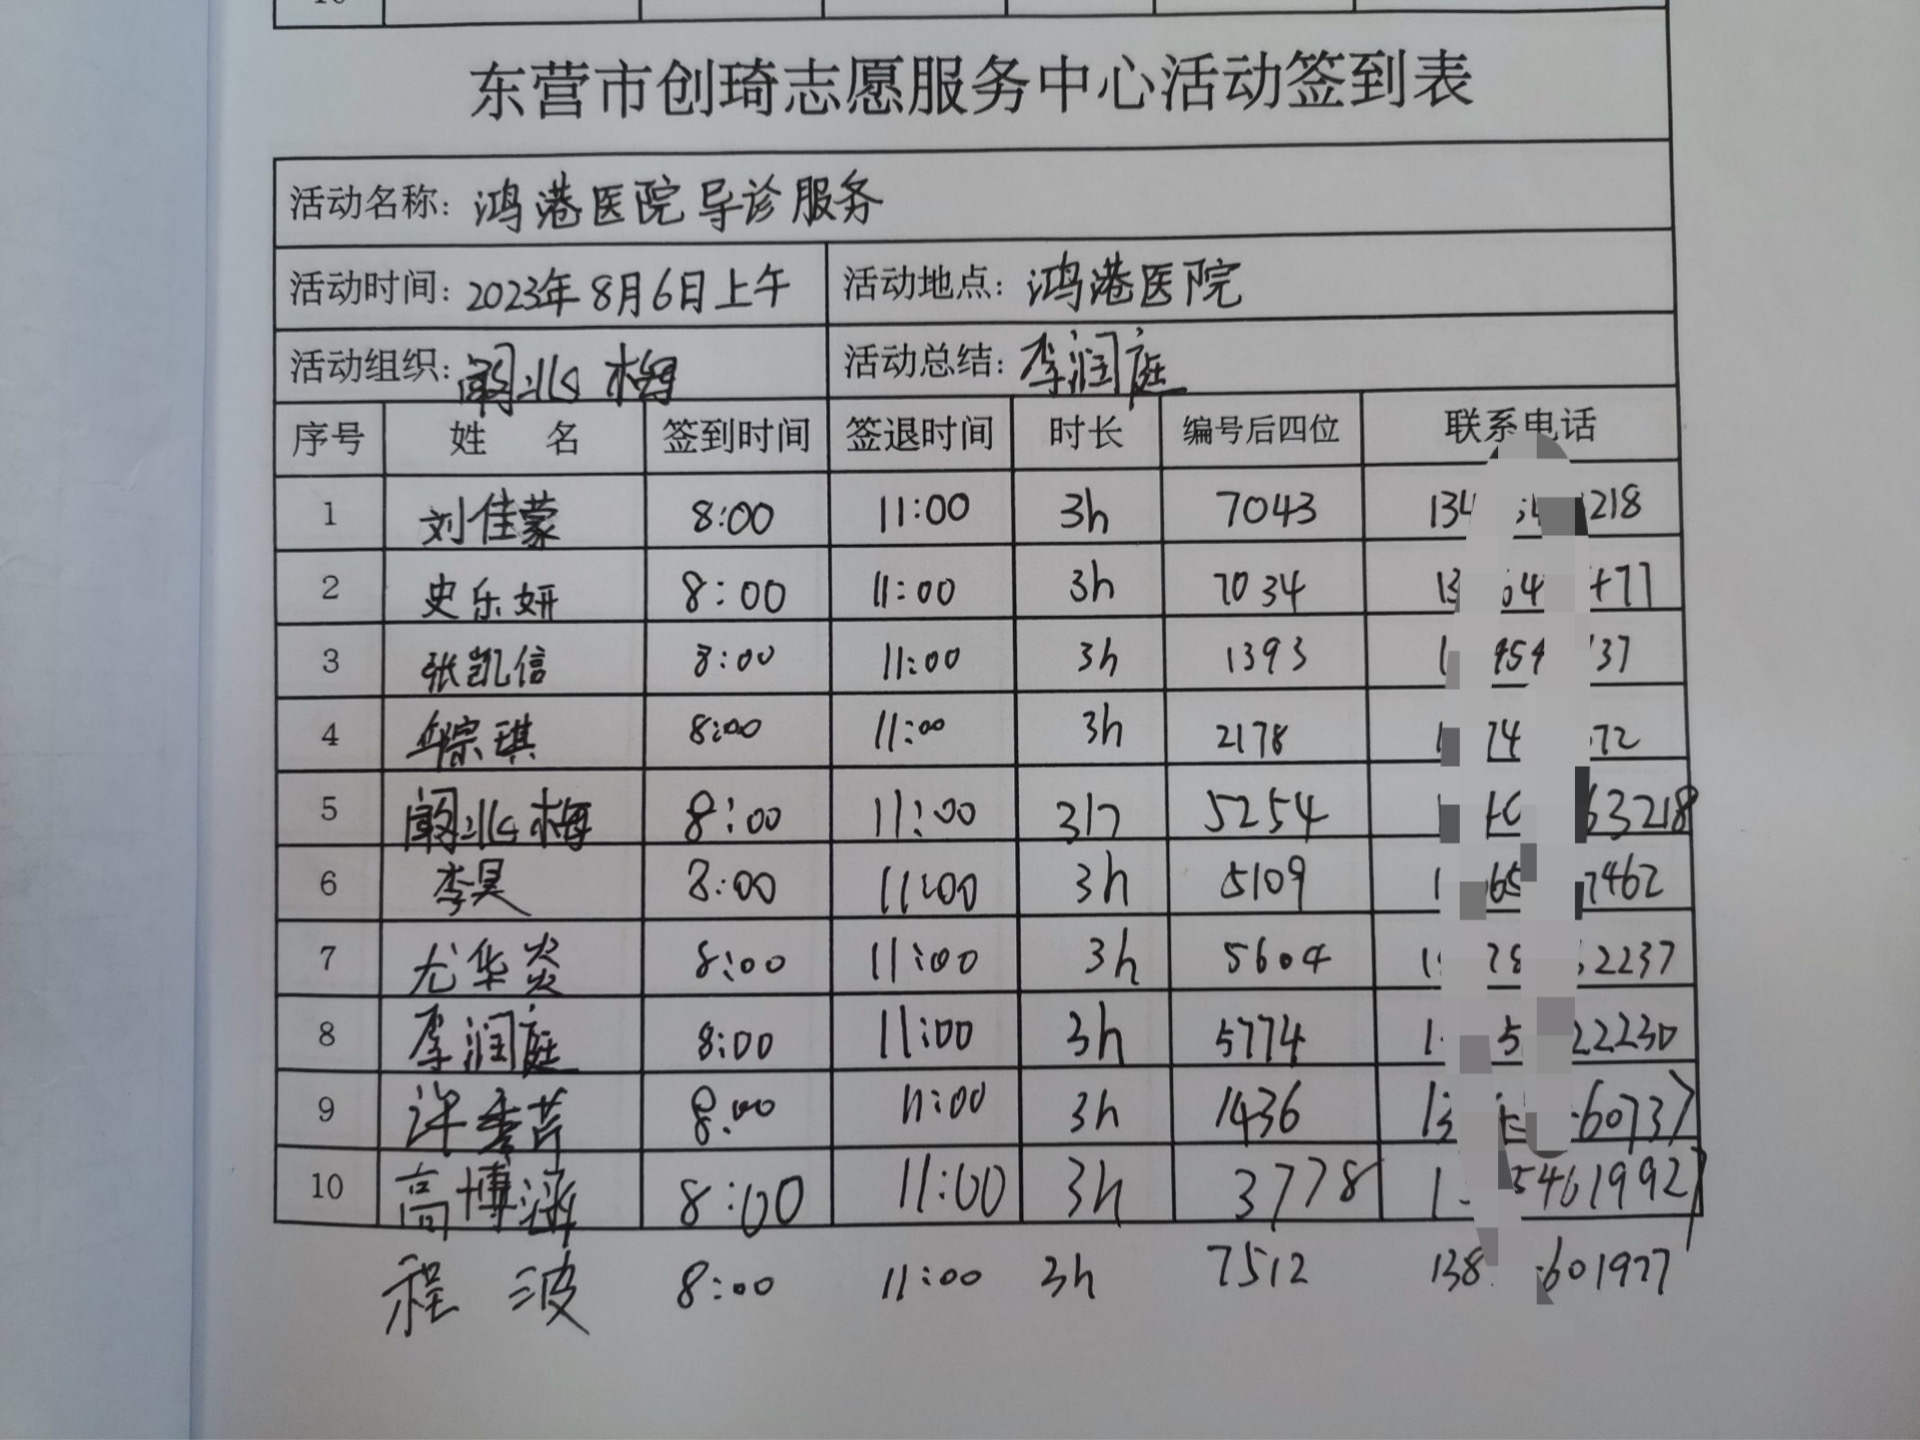 东营市创琦志愿服务中心活动签到表
活动名称: 鸿港医院导诊服务
活动时间: 2023年8月6日上午 活动地点: 鸿港医院
活动组织: 梅 活动总结: 李润庭
序号 姓 名 签到时间 签退时间 时长 编号后四位 联系电话
1 刘佳蒙 8:00 11:00 3h 7043 134 218
2 史乐妍 8:00 11:00 3h 7034 13 64 77
3 张凯信 8:00 11:00 3h 1393 1 954 37
4 宗琪 8:00 11:00 3h 2178 1 74 72
5 梅 8:00 11:00 3h 5254 1 63218
6 李昊 8:00 11:00 3h 5109 1 65 7462
7 尤华炎 8:00 11:00 3h 5604 1 78 2237
8 李润庭 8:00 11:00 3h 5774 1 5 22230
9 许秀芹 8:00 11:00 3h 1436 13 60737
10 高博涵 8:00 11:00 3h 3778 1 54619927
程波 8:00 11:00 3h 7512 138 601977